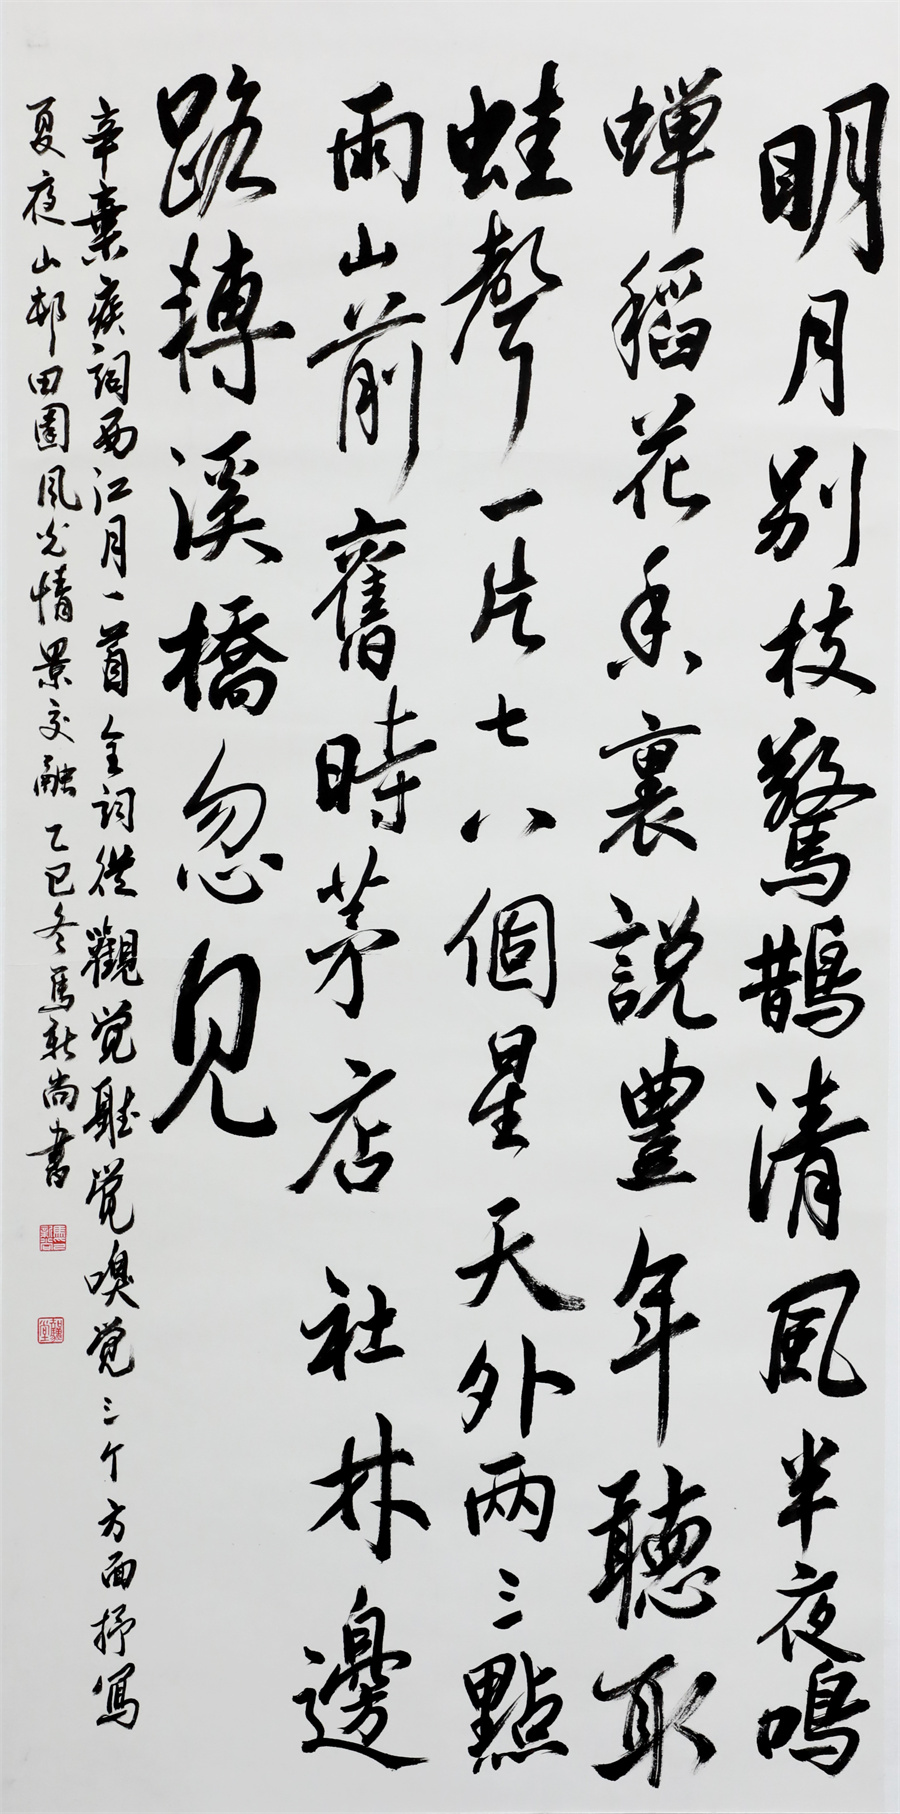 明月别枝驚鵲清風半夜鳴
蝉稻花香裏説豐年聽取
蛙聲一片七八個星天外兩三點
雨山前舊時茅店社林邊
路轉溪橋忽見
辛棄疾詞西江月一首全詞從觀覚聽覚嗅覚三个方面抒寫
夏夜山邨田園風光情景交融乙巳冬馬新尚書